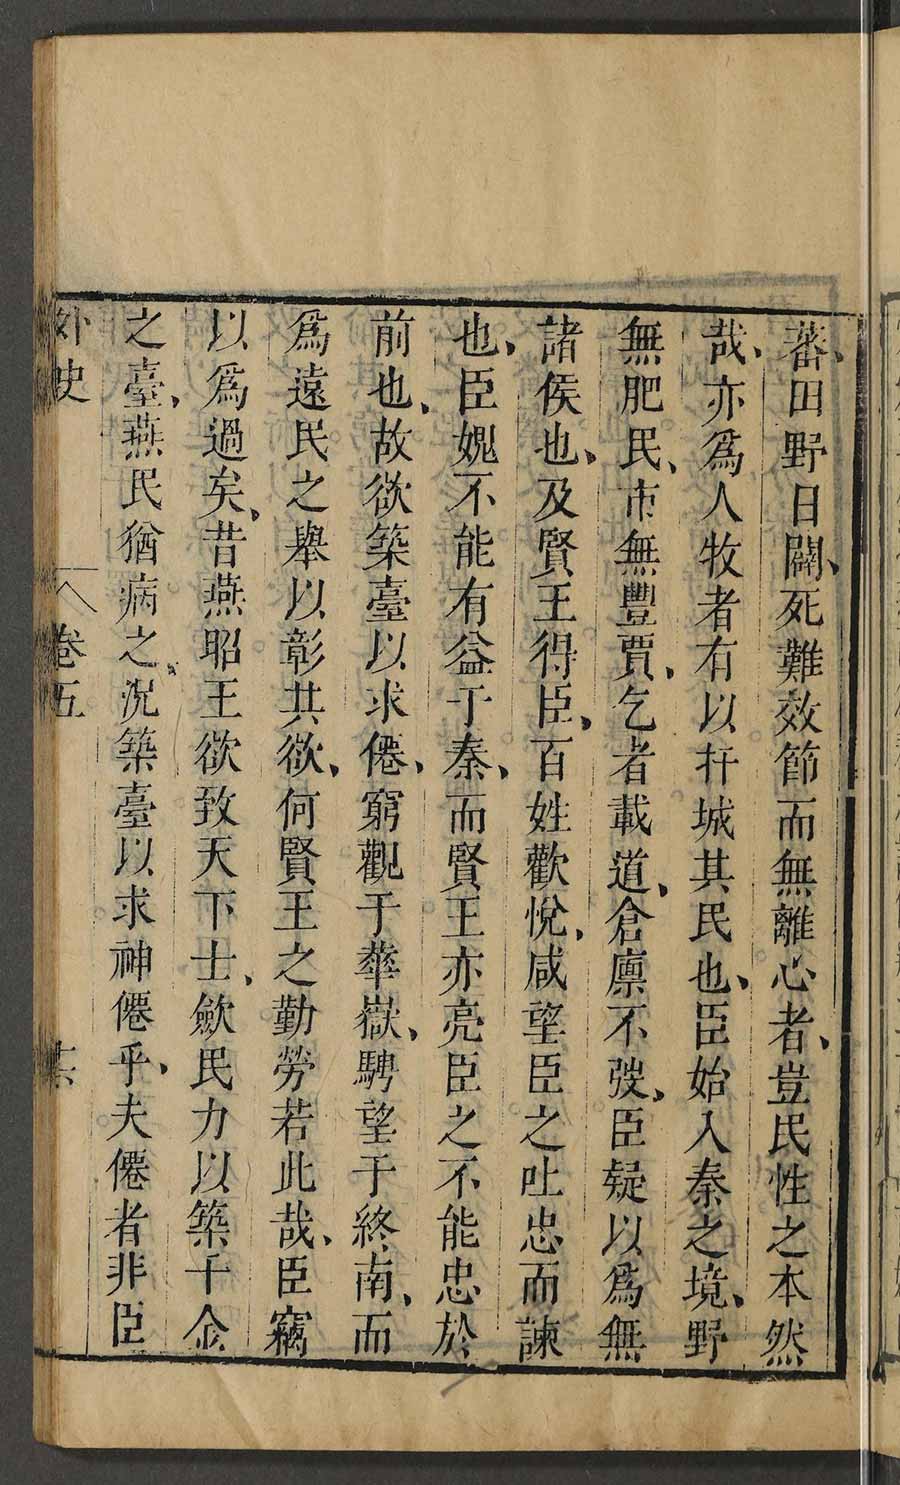 蕃、田野日闢、死難效節而無離心者、豈民性之本然
哉、亦爲人牧者有以扞城其民也、臣始入秦之境、野
無肥民、市無豐賈、乞者載道、倉廩不發、臣疑以爲無
諸侯也、及賢王得臣、百姓歡悅、咸望臣之吐忠而諫
也、臣媿不能有益于秦、而賢王亦亮臣之不能忠於
前也、故欲築臺以求僊、窮觀于華嶽、騁望于終南、而
爲遠民之舉以彰其欲、何賢王之勤勞若此哉、臣竊
以爲過矣、昔燕昭王欲致天下士、斂民力以築千金
之臺、燕民猶病之、況築臺以求神僊乎、夫僊者非臣
外史 卷五